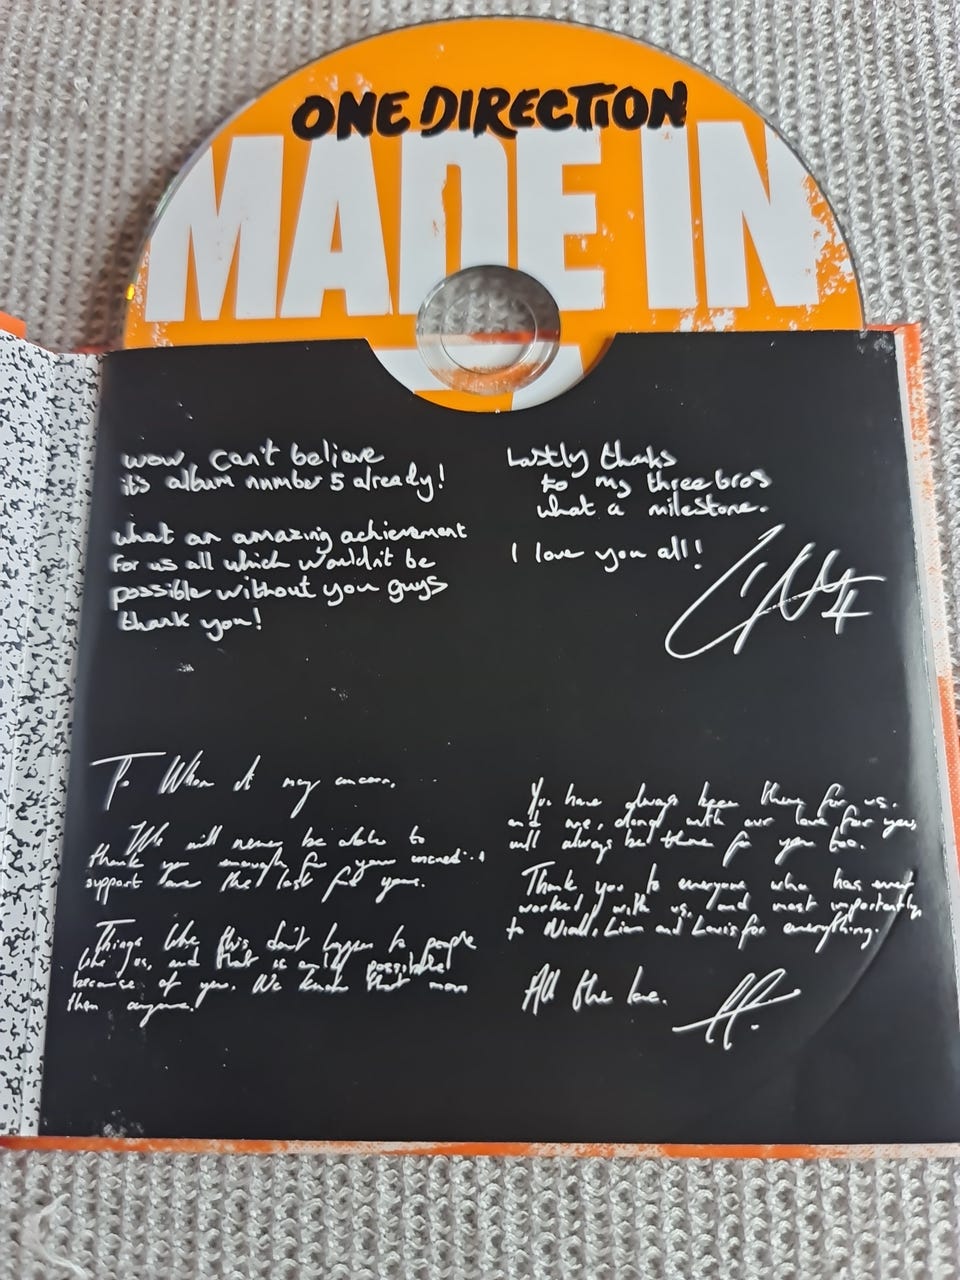 ONE DIRECTION
MADE IN
wow, can't believe
it's album number 5 already!
what an amazing achievement
for us all which wouldn't be
possible without you guys
thank you!
Lastly thanks
to my three bros
what a milestone.
I love you all!
To Whom it may concern,
We will never be able to
thank you enough for your
support over the last five years.
Things like this don't happen to people
like us, and that is only possible
because of you. We know that more
than anyone!
You have always been there for us.
and we, along with our love for you,
will always be there for you too.
Thank you to everyone who has ever
worked with us, and most importantly,
to Niall, Liam and Louis for everything.
All the love.
H.